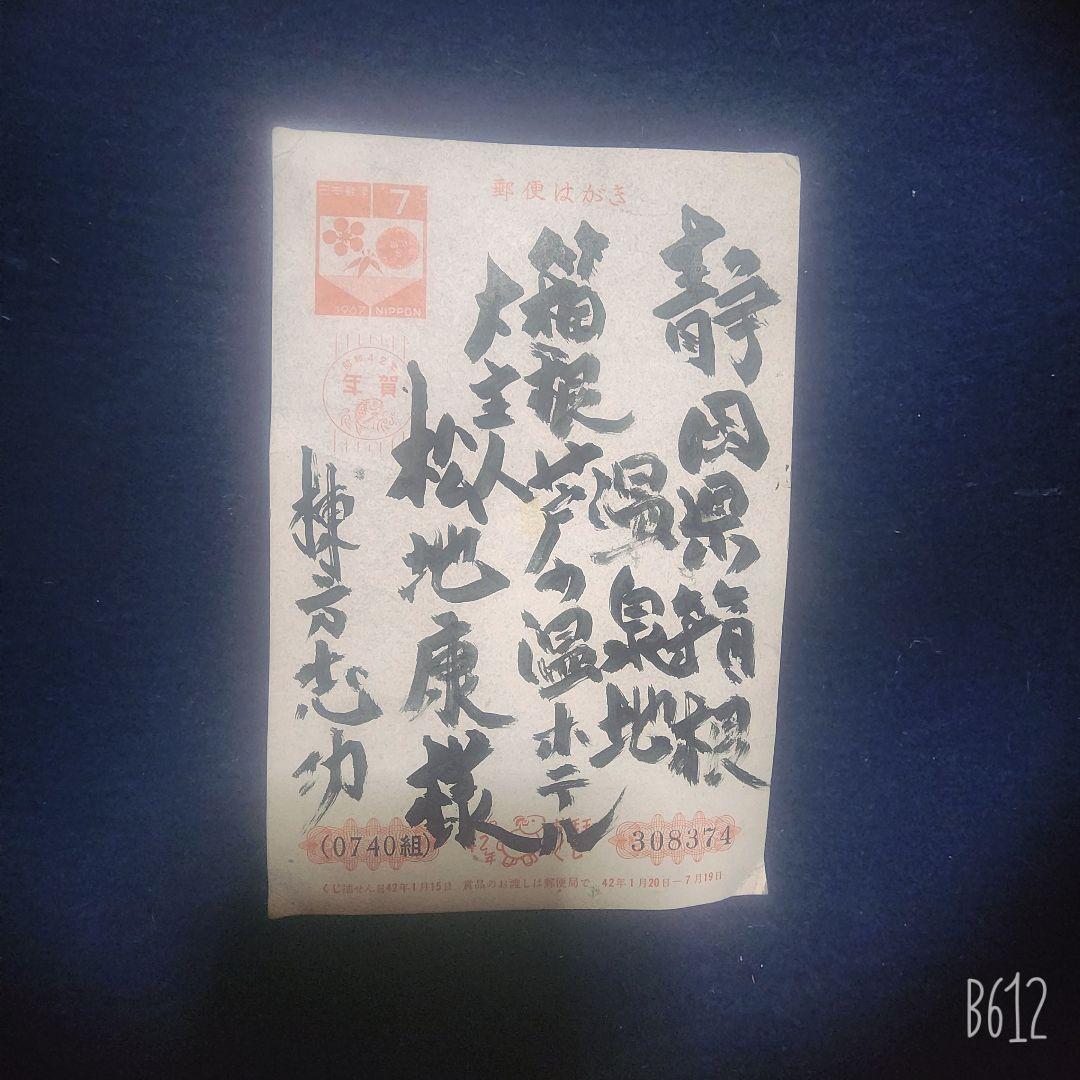 郵便はがき
7
1967 NIPPON
年賀
静岡県箱根
温泉地
箱根芦の温ホテル
大主人
松地康様
棟方志功
(0740組)
308374
くじ引せん日42年1月15日 賞品のお渡しは郵便局で 42年1月20日—7月19日
B612